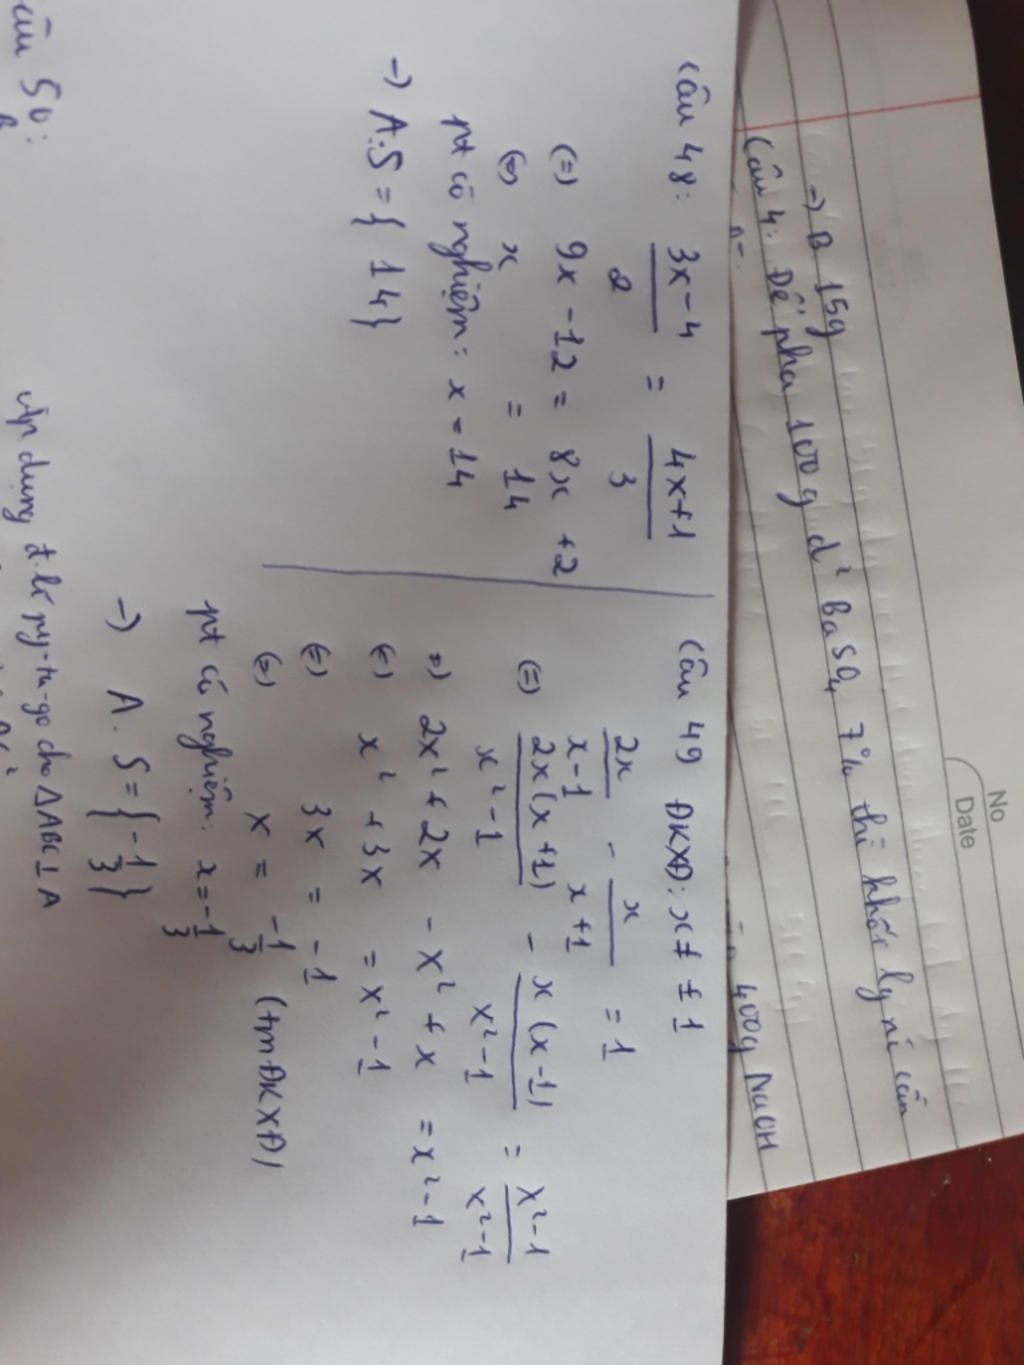 No
Date
→ B 15g
Câu 4: Để pha 100g d² BaSO₄ 7% thì khối lg nc cần
400g NaOH
Câu 48: (3x-4)/2 = (4x+1)/3
(=) 9x - 12 = 8x + 2
(=) x = 14
pt có nghiệm: x = 14
→ A. S = { 14 }
Câu 49 ĐKXĐ: x ≠ ± 1
2x/(x-1) - x/(x+1) = 1
(=) 2x(x+1)/(x²-1) - x(x-1)/(x²-1) = (x²-1)/(x²-1)
=) 2x² + 2x - x² + x = x² - 1
(=) x² + 3x = x² - 1
(=) 3x = -1
(=) x = -1/3 (tm ĐKXĐ)
pt có nghiệm: x = -1/3
→ A. S = { -1/3 }
câu 50:
Áp dụng đ.lí py-ta-go cho ΔABC ⊥ A